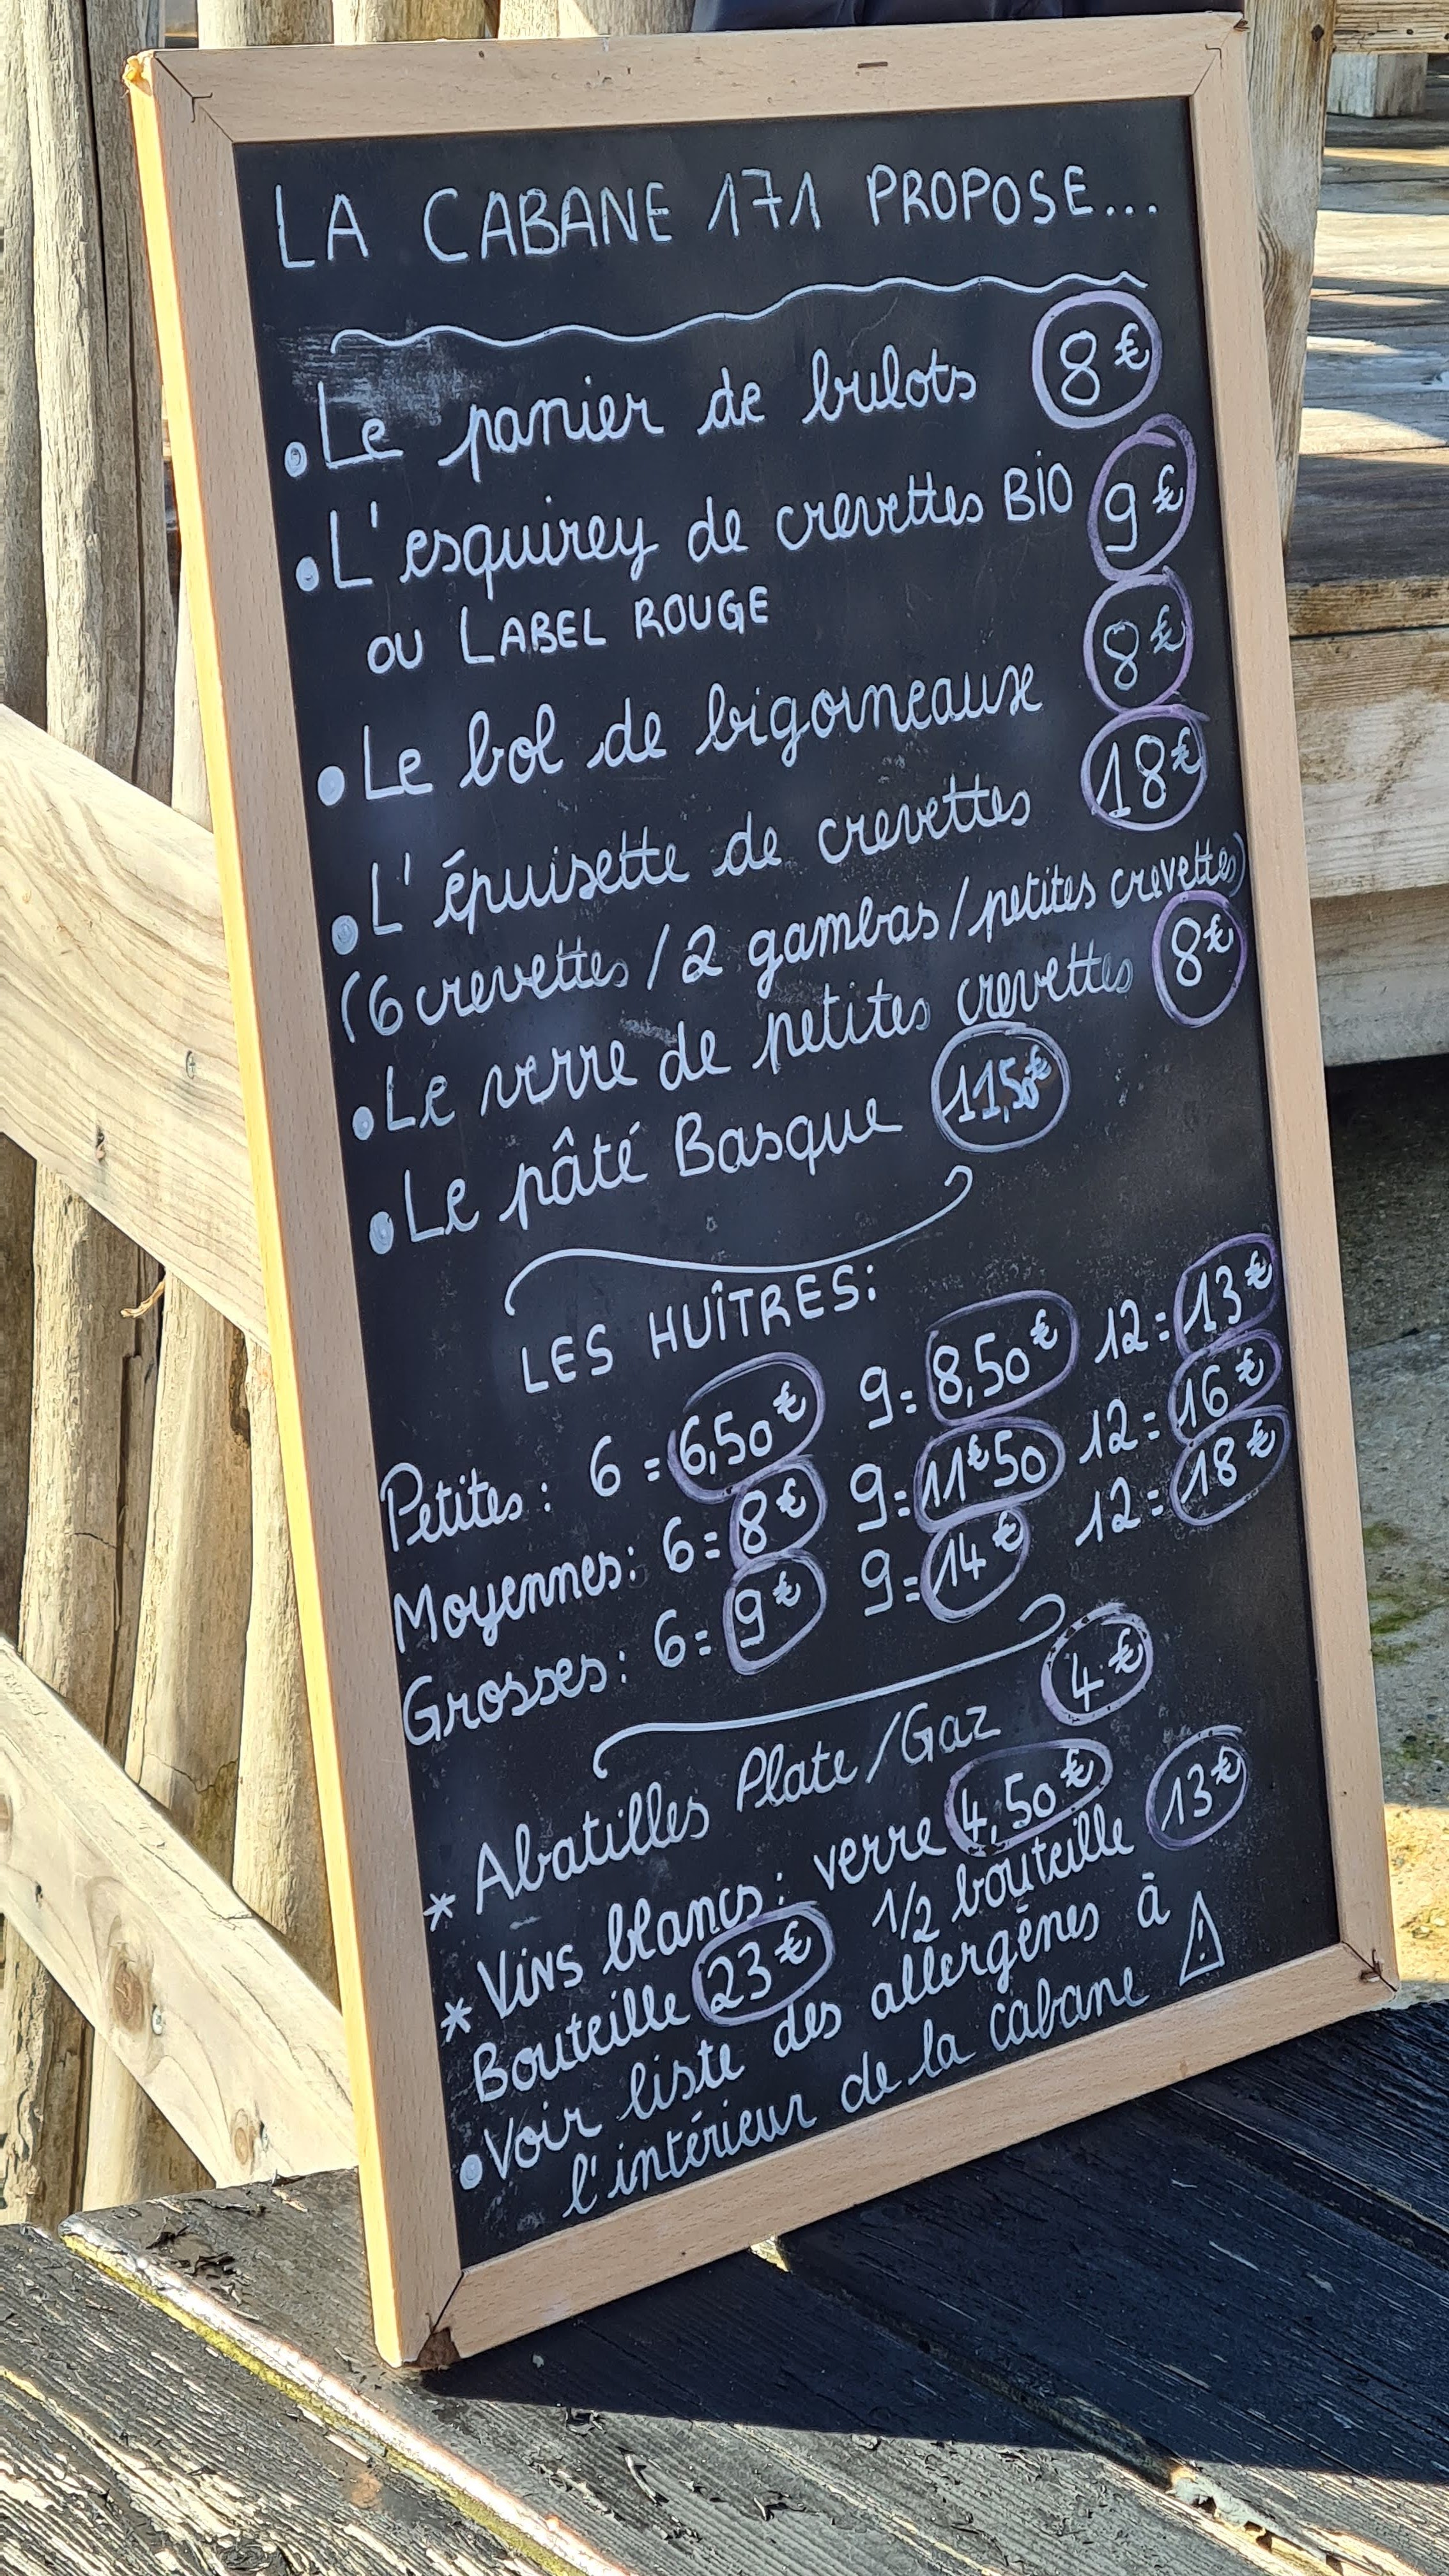 LA CABANE 171 PROPOSE...
• Le panier de bulots 8€
• L'esquirey de crevettes BIO 9€
ou LABEL ROUGE
• Le bol de bigorneaux 8€
• L'épuisette de crevettes 18€
(6 crevettes / 2 gambas / petites crevettes)
• Le verre de petites crevettes 8€
• Le pâté Basque 11,50€
LES HUÎTRES:
Petites: 6 = 6,50€ 9 = 8,50€ 12 = 13€
Moyennes: 6 = 8€ 9 = 11€50 12 = 16€
Grosses: 6 = 9€ 9 = 14€ 12 = 18€
* Abatilles Plate / Gaz 4€
* Vins blancs: verre 4,50€
Bouteille 23€ 1/2 bouteille 13€
• Voir liste des allergènes à
l'intérieur de la cabane ⚠